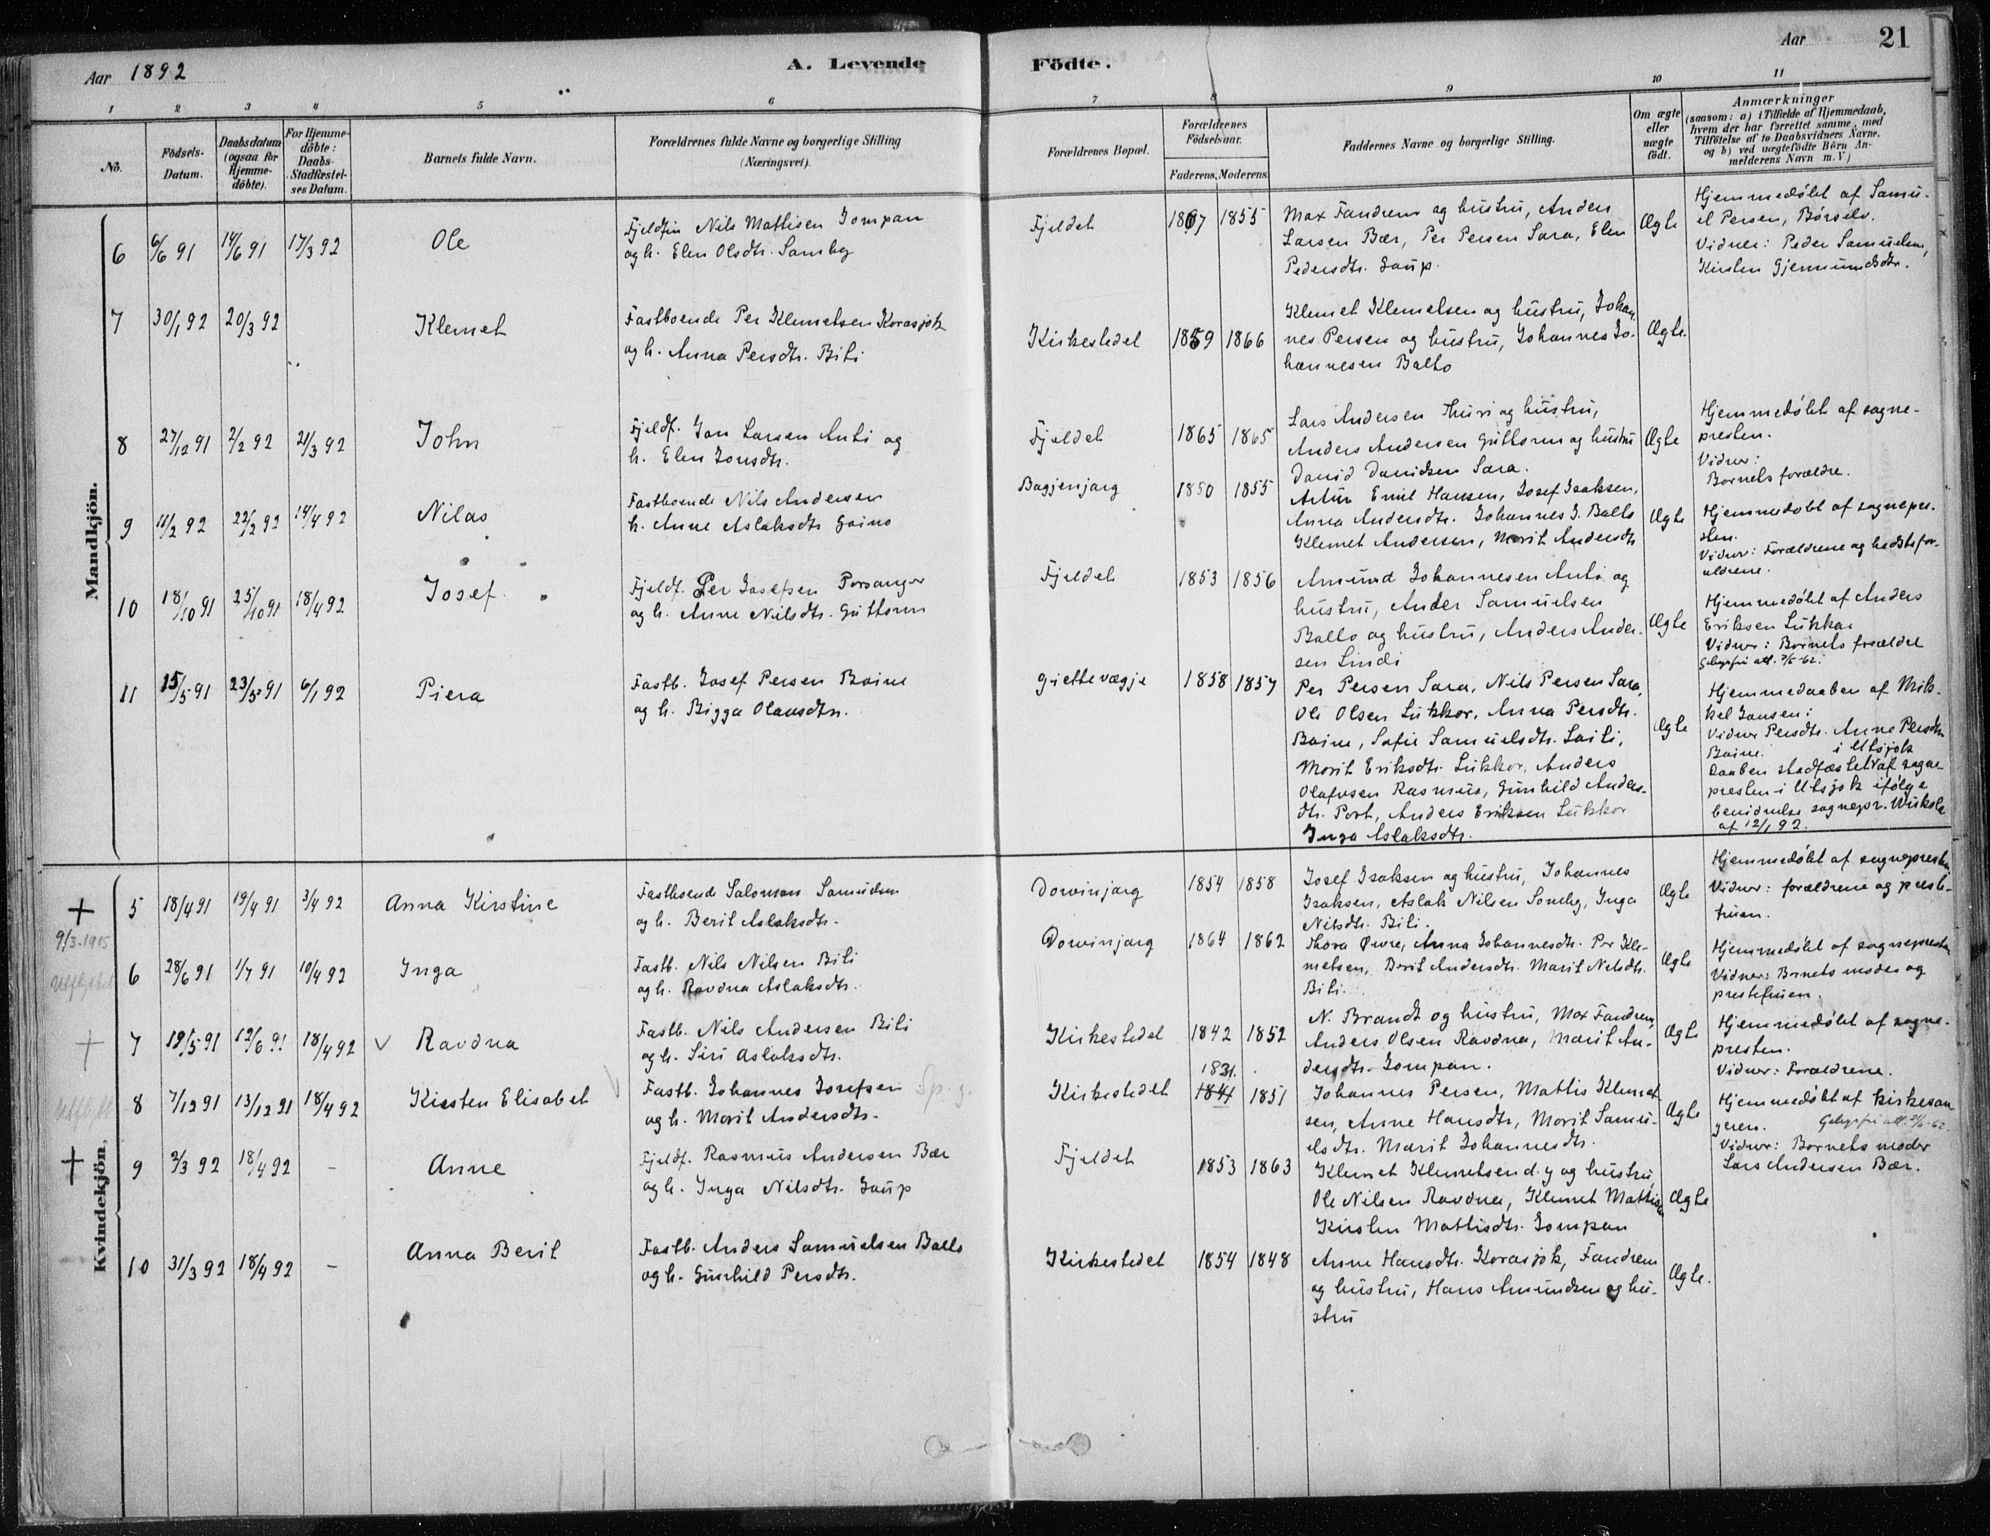 Aar 1892
A. Levende Födte.
Aar 21
1 2 3 4 5 6 7 8 9 10 11
No.
Födsels-Datum.
Daabsdatum (ogsaa for Hjemmedöbte).
For Hjemmedöbte: Daabs-Stadfæstelses Datum.
Barnets fulde Navn.
Forældrenes fulde Navne og borgerlige Stilling (Næringsvei).
Forældrenes Bopæl.
Forældrenes Födselsaar.
Faderens. Moderens.
Faddernes Navne og borgerlige Stilling.
Om ægte eller uægte födt.
Anmærkninger
(saasom: a) i Tilfælde af Hjemmedaab, hvem der har forrettet samme, med Tilföielse af to Daabsvidners Navne, og b) ved uægtefödte Börn Anmelderens Navn m. V.)
Mandkjön.
6 6/6 91 14/6 91 17/3 92 Ole
Fjeldfin Nils Mattisen Jompan
og h. Elen Olsdtr. Somby
Fjeldet 1867 1855
Max Fandrem og hustru, Anders
Larsen Bær, Per Persen Sara, Elen
Pedersdtr. Gaup.
Ægte
Hjemmedøbt af Samu-
el Persen, Børselv.
Vidner: Peder Samuelsen,
Kirsten Gjermundsdtr.
7 30/1 92 20/3 92 Klemet
Fastboende Per Klemetsen Korasjok
og h. Anna Persdtr. Biti
Kirkestedet 1859 1866
Klemet Klemetsen og hustru, Johan-
nes Persen og hustru, Johannes Jo-
hannesen Balto
Ægte.
8 27/12 91 2/2 92 21/3 92 John
Fjeldf. Jon Larsen Anti og
h. Elen Jonsdtr.
Fjeldet 1865 1865
Lars Andersen Thuri og hustru,
Anders Andersen Guttorm og hustru
David Davidsen Sara.
Ægte
Hjemmedøbt af sogne-
presten.
Vidner:
Barnets forældre.
9 11/2 92 22/2 92 14/4 92 Nilas
Fastboende Nils Andersen
h. Anne Aslaksdtr Gaino
Bagjenjarg 1850 1855
Artur Emil Hansen, Josef Isaksen,
Anna Andersdtr. Johannes J. Balto
Klemet Andersen, Marit Andersdtr
Ægte
Hjemmedøbt af sognepre-
sten.
Vidner: Forældrene og bedstefor-
ældrene.
10 18/10 91 25/10 91 18/4 92 Josef.
Fjeldf. Per Josefsen Porsanger
og h. Anne Nilsdtr. Guttorm
Fjeldet 1853 1856
Amund Johannesen Anti og
hustru, Ander Samuelsen
Balto og hustru, Anders Ander-
sen Lindi
Ægte
Hjemmedøbt af Anders
Eriksen Lukkar
Vidner: Barnets forældre
11 15/5 91 23/5 91 6/1 92 Piera
Fastb. Josef Persen Boine
og h. Bigga Olausdtr.
Giettevægje 1858 1857
Per Persen Sara, Nils Persen Sara,
Ole Olsen Lukkar, Anna Persdtr.
Boine, Sofie Samuelsdtr. Laiti,
Marit Eriksdtr. Lukkar, Anders
Olafvsen Rasmus, Gunhild Anders-
dtr. Port, Anders Eriksen Lukkar
Inga Aslaksdtr.
Ægte
Hjemmedaaben af Mik-
kel Jansen:
Vidner Persdtr. Anne Persdtr
Boine. i Utsjok
Daaben stadfæstet af sogne-
presten i Utsjok ifølge
bevidnelse sognepr.
af 12/1 92.
Kvindekjön.
5 18/4 91 19/4 91 3/4 92 Anna Kirstine
9/3-1915
Fastboende Salomon Samuelsen
og h. Berit Aslaksdtr.
Dorvinjarg 1854 1858
Josef Isaksen og hustru, Johannes
Isaksen, Aslak Nilsen Somby, Inga
Nilsdtr. Biti.
Ægte
Hjemmedøbt af sognepresten
Vidner: forældrene og preste-
fruen.
6 28/6 91 1/7 91 10/4 92 Inga
Fastb. Nils Nilsen Biti
og h. Ravdna Aslaksdtr.
Dorvinjarg 1864 1862
Thora Øvre, Anna Johannesdtr. Per Kle-
metsen, Berit Andersdtr. Marit Nilsdtr.
Biti.
Ægte
Hjemmedøbt af sognepresten
Vidner: Barnets moder og
prestefruen.
7 19/5 91 12/6 91 18/4 92 Ravdna
Fastb. Nils Andersen Biti
og h. Siri Aslaksdtr.
Kirkestedet 1842 1852
N. Brandt og hustru, Max Fandrem,
Anders Olsen Ravdna, Marit An-
dersdtr. Jompan.
Ægte
Hjemmedøbt af sogne-
presten.
Vidner: Forældrene.
8 7/12 91 13/12 91 18/4 92 Kirsten Elisabet
Fastb. Johannes Josefsen
og h. Marit Andersdtr.
Kirkestedet 1831. 1841 1851
Johannes Persen, Mattis Klemet-
sen, Anne Hansdtr, Marit Samu-
elsdtr. Marit Johannesdtr.
Ægte
Hjemmedøbt af kirkesan
geren.
Vidner: Barnets moder
Lars Andersen Bær.
9 2/3 92 18/4 92 – Anne
Fjeldf. Rasmus Andersen Bær
og h. Inga Nilsdtr. Gaup
Fjeldet 1853 1863
Klemet Klemetsen d. y og hustru,
Ole Nilsen Ravdna, Klemet Mattisen
Kirsten Mattisdtr. Jompan
Ægte
10 31/3 92 18/4 92 – Anna Berit
Fastb. Anders Samuelsen Balto
og h. Gunhild Persdtr.
Kirkestedet 1854 1848
Anne Hansdtr. Korasjok, Fandrem
og hustru, Hans Amundsen og hu-
stru
Ægte.